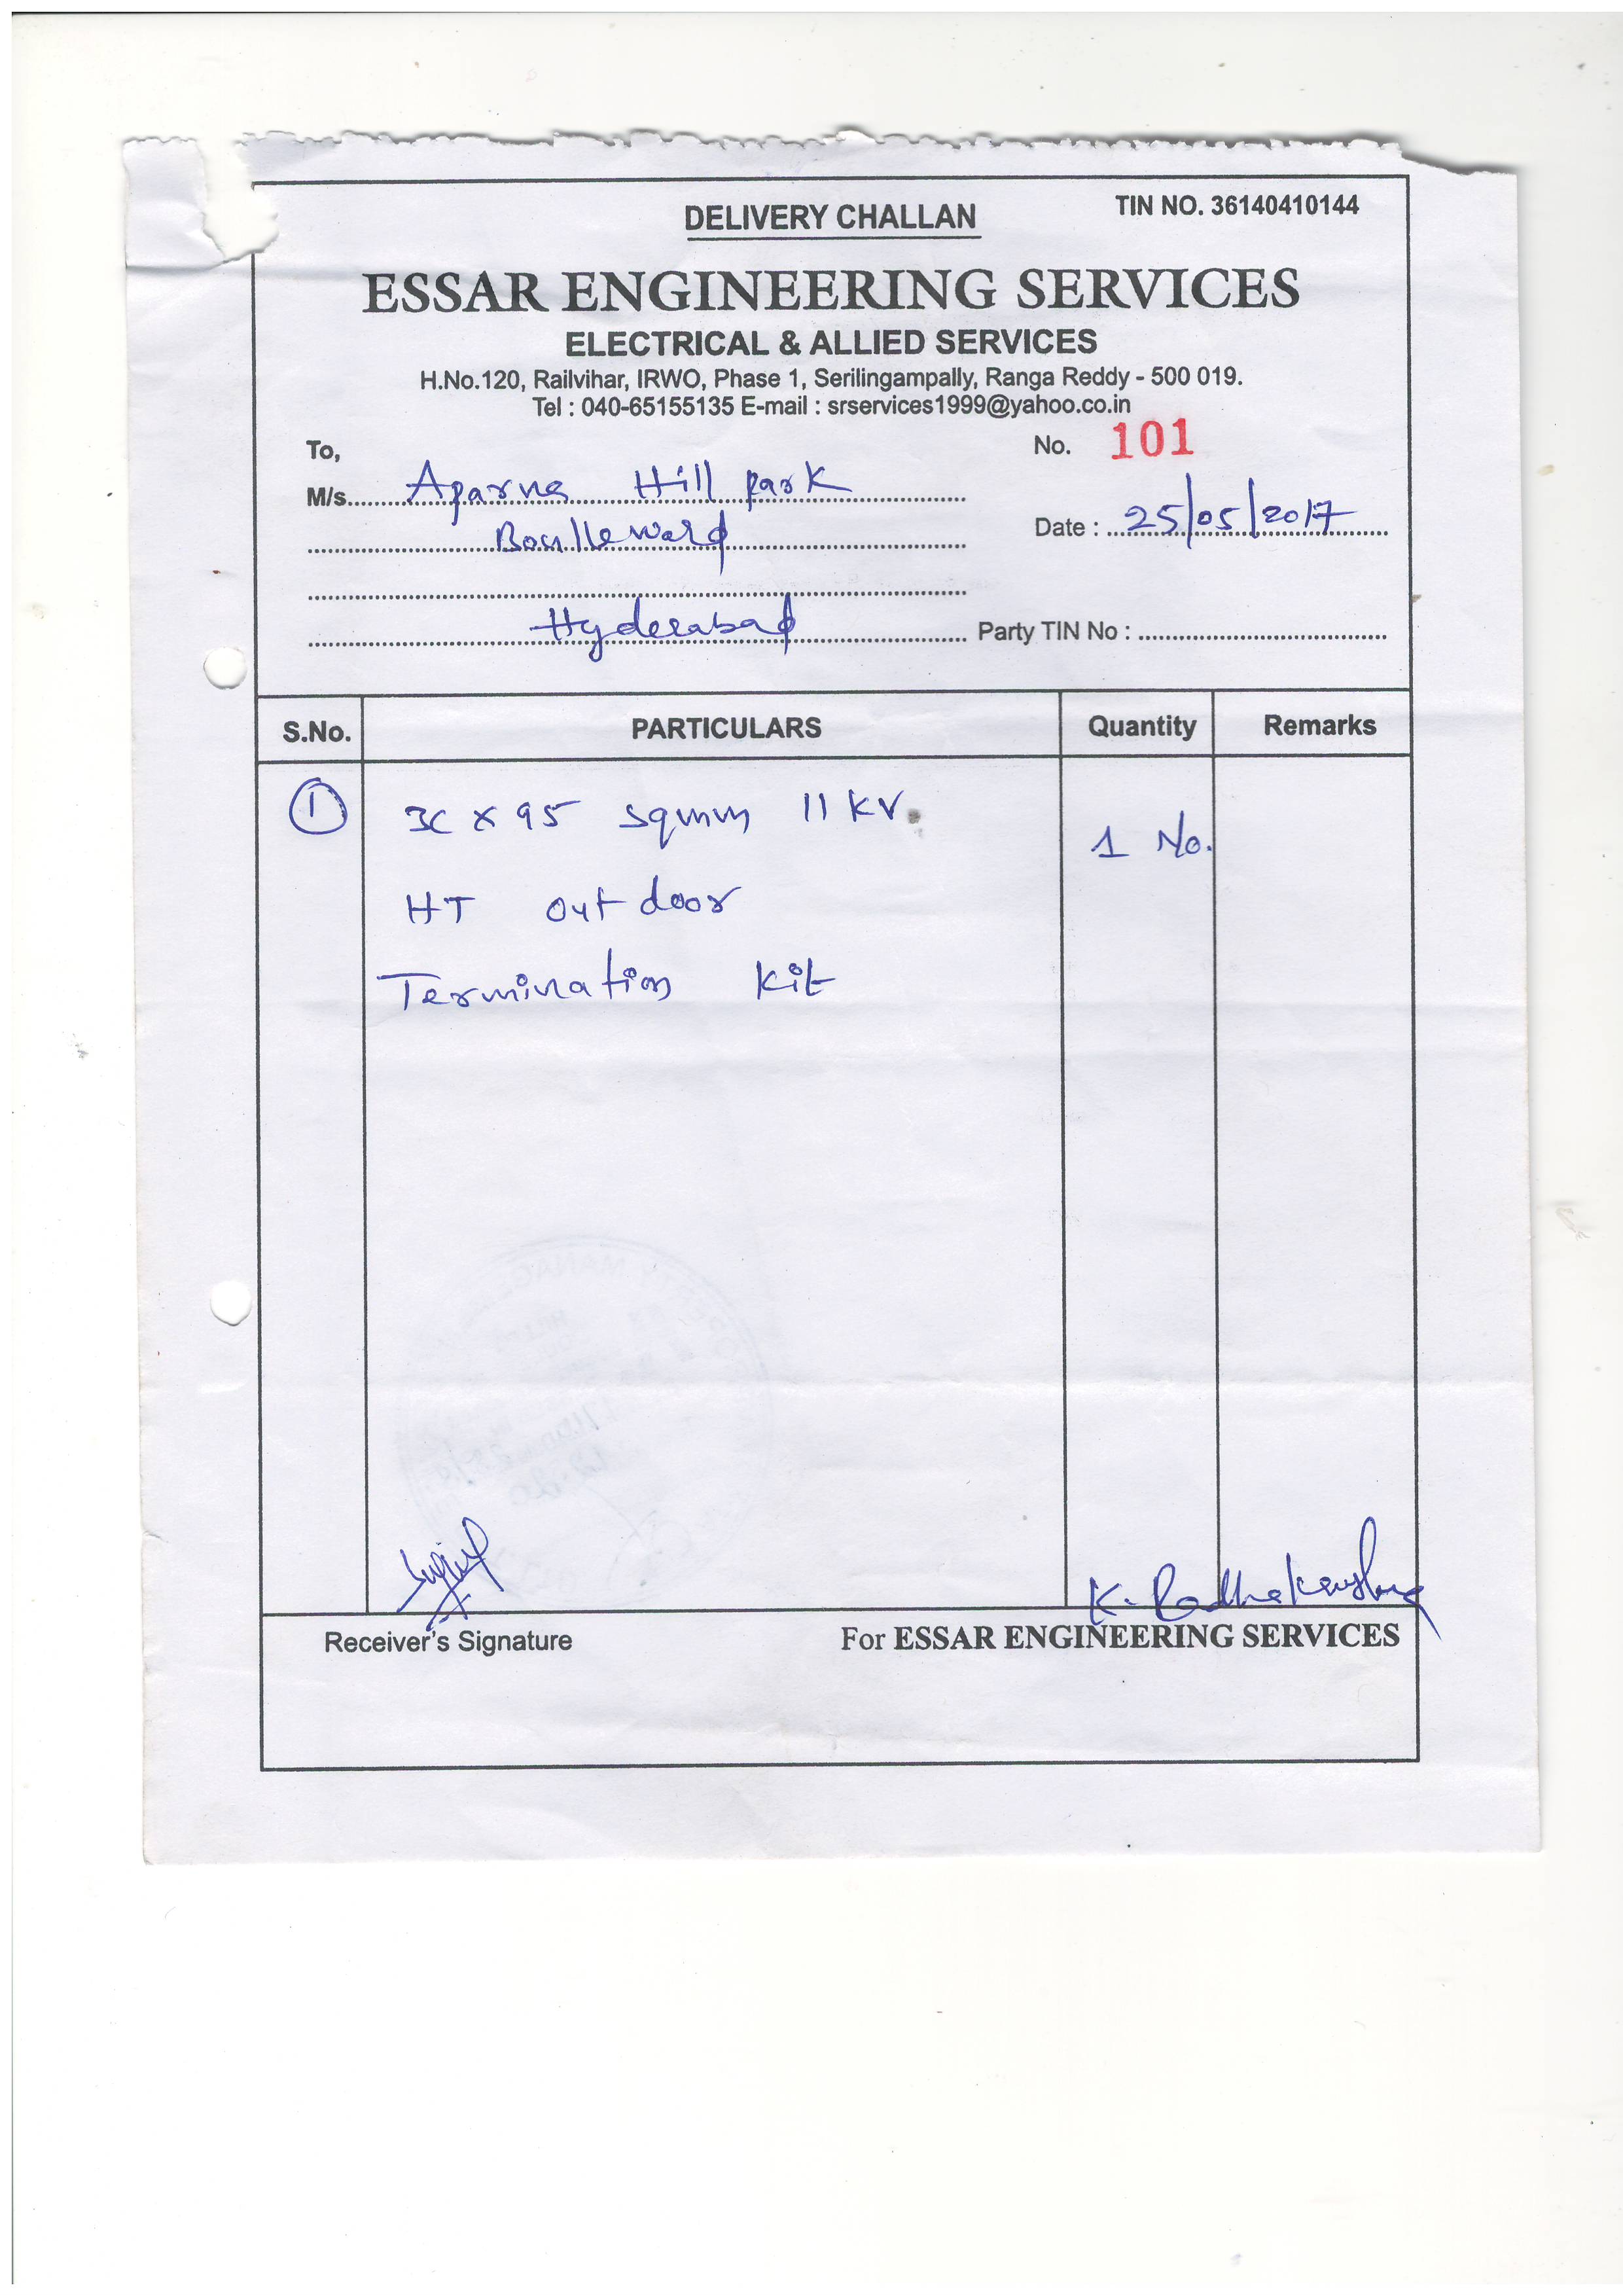 DELIVERY CHALLAN
TIN NO. 36140410144
ESSAR ENGINEERING SERVICES
ELECTRICAL & ALLIED SERVICES
H.No.120, Railvihar, IRWO, Phase 1, Serilingampally, Ranga Reddy - 500 019.
Tel : 040-65155135 E-mail : srservices1999@yahoo.co.in
To,
No. 101
M/s. Aparna Hill park
Boulleward
Date : 25/05/2017
Hyderabad
Party TIN No :
S.No. PARTICULARS Quantity Remarks
1 3C x 95 sqmm 11 KV.
1 No.
HT out door
Termination Kit
K. Radhakrishna
Receiver's Signature
For ESSAR ENGINEERING SERVICES